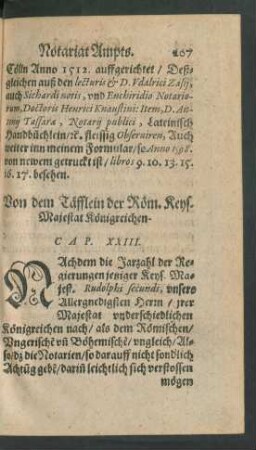 Notariat Ampts. 207
Cöln Anno 1512. auffgerichtet / Deß-
gleichen auß den lecturis & D. Vdalrici Zasij,
auch Sichardi notis, vnd Enchiridio Notario-
rum, Doctoris Henrici Knaustini: Item, D. An-
tony Tassaræ, Notarij publici, Lateinisch
Handbüchlein / ꝛc. fleissig Obseruiren, Auch
weiter inn meinem Formular / so Anno 1598.
von newem getruckt ist / libros 9. 10. 13. 15.
16. 17. besehen.
Von dem Täfflein der Röm. Keys.
Majestat Königreichen.
CAP. XXIII.
NAchdem die Jarzahl der Re-
gierungen jeniger Keys. Ma-
jest. Rudolphi secundi, vnsers
Allergnedigsten Herrn / jrer
Majestat vnderschiedlichen
Königreichen nach / als dem Römischen /
Vngerischē vñ Böhemischē / vngleich / Al-
so / dz die Notarien / so darauff nicht sondlich
Achtūg gebē / dariñ leichtlich sich verstossen
mögen